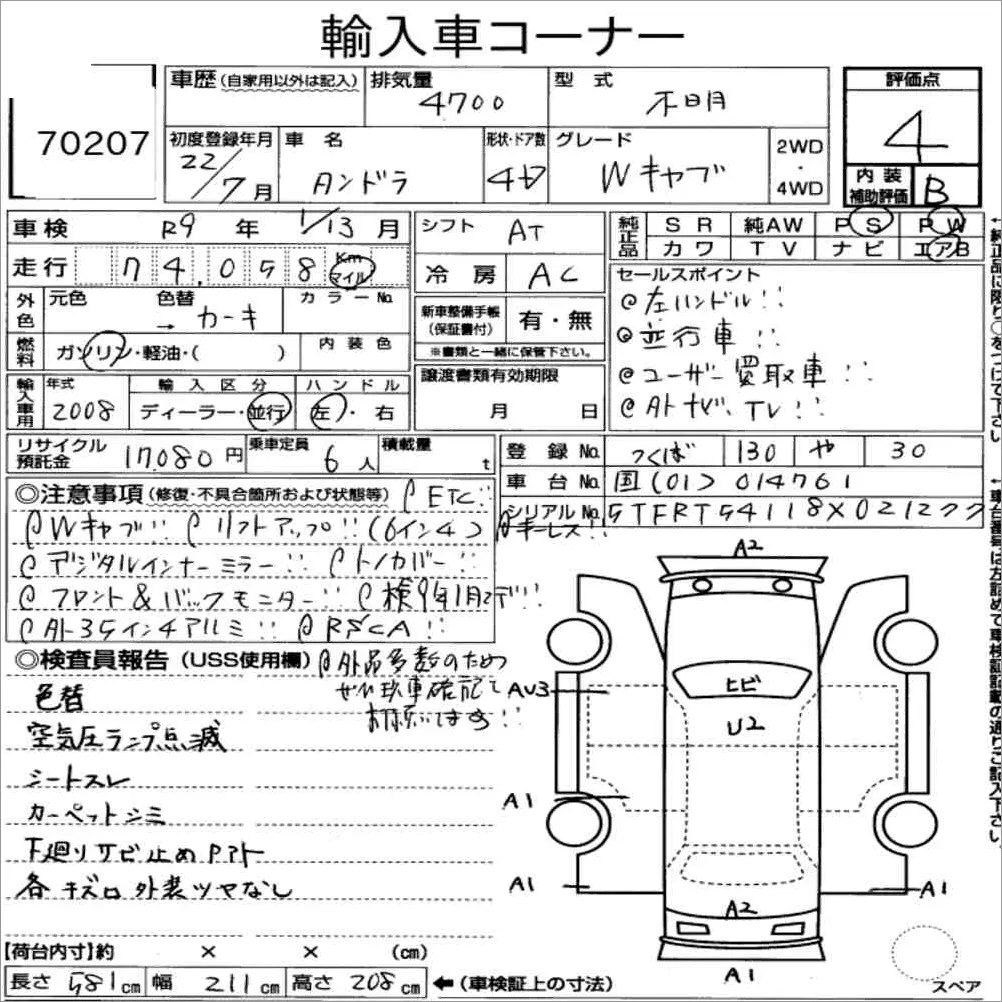 輸入車コーナー
70207
車歴 (自家用以外は記入)
排気量 4700
型式 不明
評価点 4
内装補助評価 B
初度登録年月 22/7月
車名
形状・ドア数
グレード Wキャブ
2WD・4WD
車検 R9年 1/13月
走行 74,058 Km マイル
シフト AT
冷房 AC
純正品 SR 純AW PS PW
カワ TV ナビ エアB
外色 元色 色替 → カーキ カラーNo.
燃料 ガソリン・軽油・( )
内装色
新車整備手帳(保証書付) 有・無
※書類と一緒に保管下さい。
セールスポイント
左ハンドル!!
並行車!!
ユーザー買取車!!
TV!!
輸入車用 年式 2008
輸入区分 ディーラー・並行
ハンドル 左・右
譲渡書類有効期限 月 日
リサイクル預託金 17,080円
乗車定員 6人
積載量 t
登録No. つくば 130 や 30
車台No. 国(01)014761
シリアルNo. 5TFRT54118X021277
◎注意事項(修復・不具合箇所および状態等) ETC!!
Wキャブ!! リフトアップ!! (6インチ) キーレス!!
デジタルインナーミラー!! トノカバー!!
フロント&バックモニター!! 検9年1月まで!!
35インチアルミ!!
◎検査員報告(USS使用欄) 外品多数のため
現車確認を
色替
空気圧ランプ点滅
シートスレ
カーペットシミ
下廻りサビ止め
各キズ凹 外装ツヤなし
A2
AU3
ヒビ
U2
A1
A1
A1
A2
A1
スペア
【荷台内寸】約 × × (cm)
長さ 581cm 幅 211cm 高さ 208cm ←(車検証上の寸法)
←純正品に限り○をつけて下さい。
←車台番号は左詰めで車検証記載の通りご記入下さい。